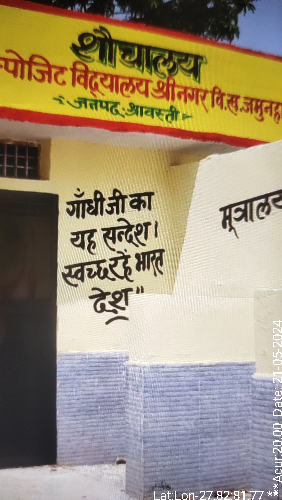 शौचालय
पोजिट विद्यालय श्रीनगर वि.ख. जमुनहा
जनपद श्रावस्ती
गाँधी जी का
यह सन्देश।
स्वच्छ रहें भारत
देश"
मूत्रालय
Lat:Lon-27.82:81.77
***Acur:20.00 Date: 21-05-2024